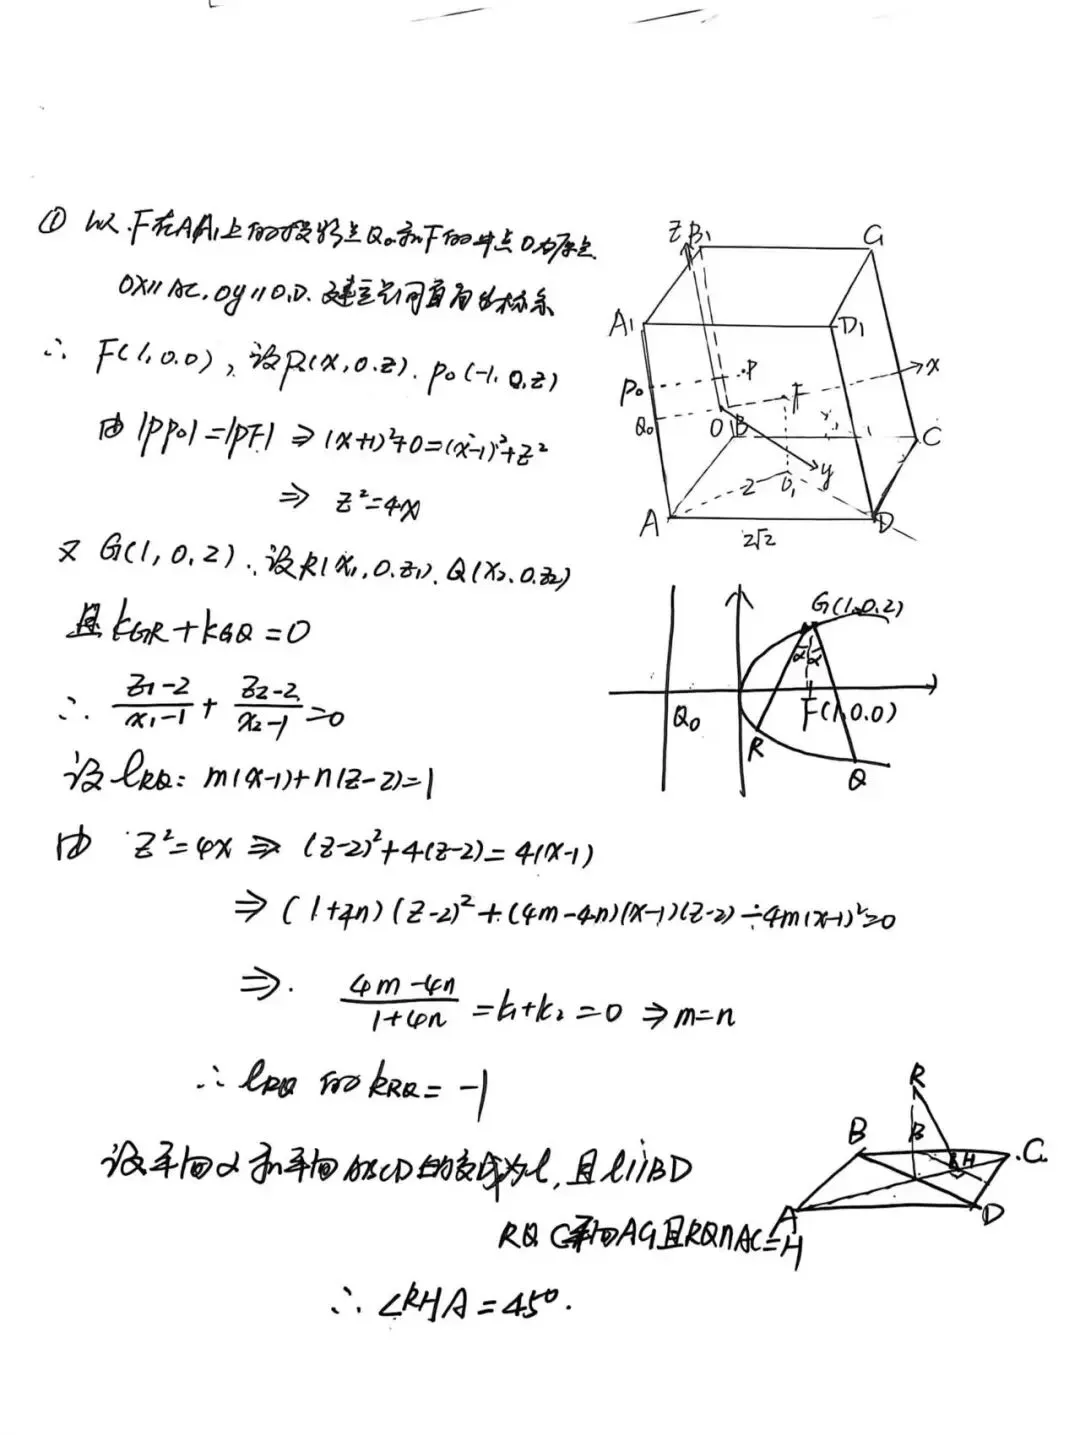 ① 以F在AA₁上的投影点Q₀和F的中点O为原点
OX∥AC,OY∥O₁D.建立空间直角坐标系
∴ F(1,0.0),设P(x,0.z).P₀(-1,0,z)
由|PP₀|=|PF| ⇒ (x+1)²+0=(x-1)²+z²
⇒ z²=4x
又 G(1,0,2).设R(x₁,0.z₁).Q(x₂.0.z₂)
且 k_GR+k_GQ=0
∴ (z₁-2)/(x₁-1) + (z₂-2)/(x₂-1) =0
设 l_RQ: m(x-1)+n(z-2)=1
由 z²=4x ⇒ (z-2)²+4(z-2)=4(x-1)
⇒ (1+4n)(z-2)²+(4m-4n)(x-1)(z-2)-4m(x-1)²=0
⇒. (4m-4n)/(1+4n) =k₁+k₂=0 ⇒m=n
∴ l_RQ 的 k_RQ=-1
设平面α和平面ABCD的交线为l,且l∥BD
RQ⊂平面AC₁且RQ∩AC=H
∴ ∠RHA=45°.
Z B₁ C₁
A₁ D₁
P₀ P F x
Q₀ O B C
2 O₁ y
A D
2√2
G(1,0,2)
α α
Q₀ F(1,0.0)
R
Q
R
B B H C
A D